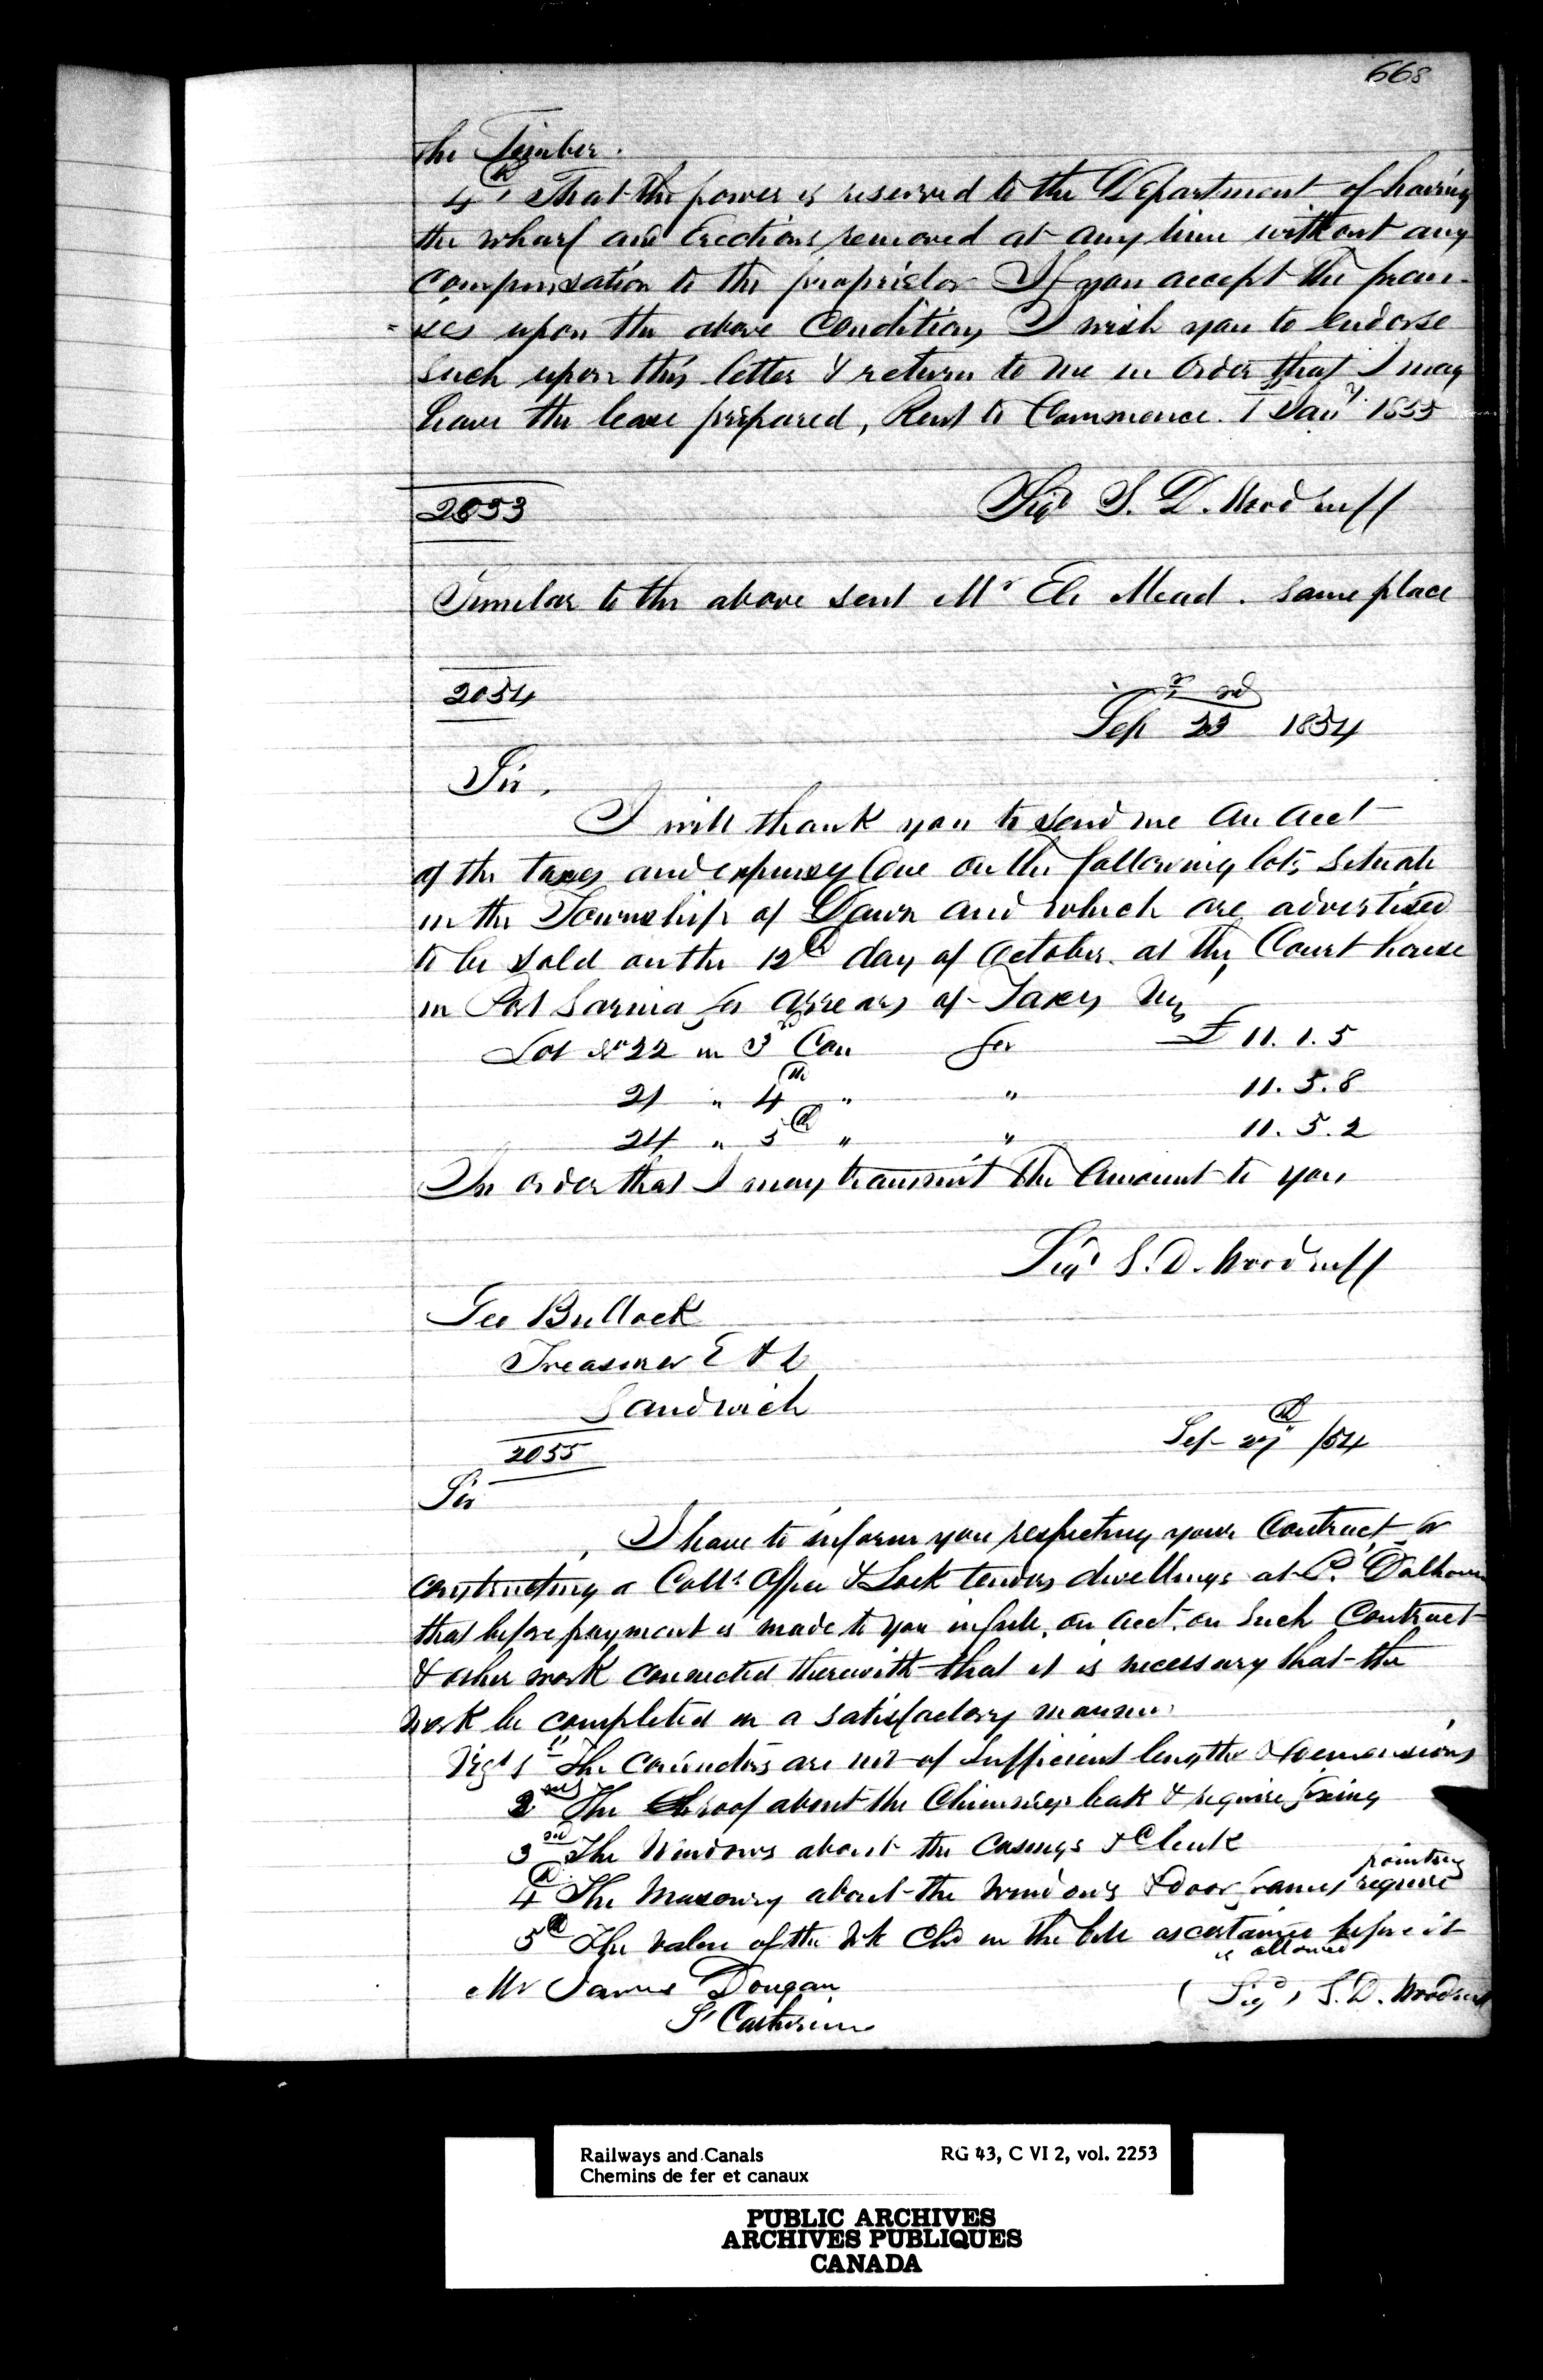 668
the Timber.
4th That the power is reserved to the Department of having
the wharf and Erections removed at any time without any
compensation to the proprietor If you accept the prem-
-ises upon the above Conditions I wish you to endorse
such upon this letter & return to me in order that I may
have the lease prepared, Rent to Commence 1 Jany. 1855
Sigd S. D. Woodruff
2053
Similar to the above sent Mr Eli Mead. same place
2054
Sep 23rd 1854
Sir,
I will thank you to send me an acct
of the taxes and expenses due on the following lots situate
in the Township of Dawn and which are advertised
to be sold on the 12th day of October at the Court house
in Port Sarnia for arrears of Taxes
Lot No 22 in 3rd Con for £ 11. 1. 5
21 " 4th " " 11. 5. 8
24 " 5th " " 11. 5. 2
In order that I may transmit the Amount to you
Sigd S. D. Woodruff
Geo Bullock
Treasurer E & L
Sandwich
2055
Sep 27th /54
Sir
I have to inform you respecting your Contract for
constructing a Colls. Office & Lock tenders dwellings at P. Dalhousie
that before payment is made to you in full, on acct. on such Contract
& other work connected therewith that it is necessary that the
work be completed in a satisfactory manner
1st The are not of sufficient lengths & demensions
2nd The roof about the Chimneys leak & require fixing
3rd The Windows about the Casings leak
4th The Masonry about the windows & door frames require pointing
5th The value of the in the ascertained before it
is allowed
Mr James Dougan
St Catherines
(Sigd) S. D. Woodruff
Railways and Canals
Chemins de fer et canaux
RG 43, C VI 2, vol. 2253
PUBLIC ARCHIVES
ARCHIVES PUBLIQUES
CANADA